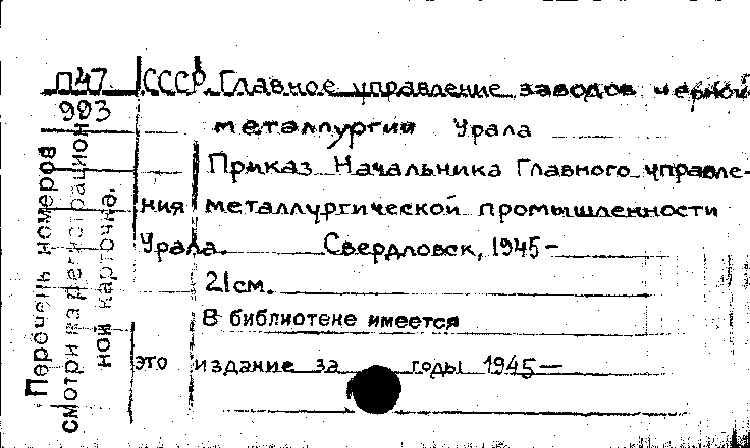 П47
993
СССР. Главное управление заводов черной
металлургии Урала
Приказ Начальника Главного управле-
ния металлургической промышленности
Урала. Свердловск, 1945-
21см.
В библиотеке имеется
это издание за годы 1945-
Перечень номеров
смотри на регистрацион
ной карточке.